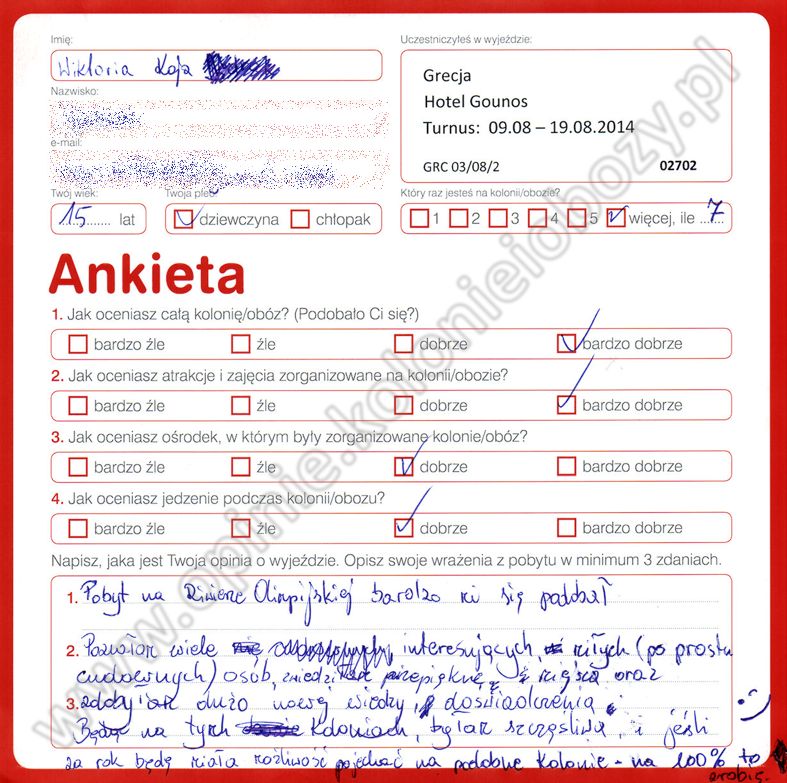 Imię:
Wiktoria Kaja
Uczestniczyłeś w wyjeździe:
Grecja
Hotel Gounos
Turnus: 09.08 – 19.08.2014
GRC 03/08/2 02702
Nazwisko:
e-mail:
Twój wiek:
15 lat
Twoja płeć
dziewczyna chłopak
Który raz jesteś na kolonii/obozie?
1 2 3 4 5 więcej, ile 7
Ankieta
1. Jak oceniasz całą kolonię/obóz? (Podobało Ci się?)
bardzo źle źle dobrze bardzo dobrze
2. Jak oceniasz atrakcje i zajęcia zorganizowane na kolonii/obozie?
bardzo źle źle dobrze bardzo dobrze
3. Jak oceniasz ośrodek, w którym były zorganizowane kolonie/obóz?
bardzo źle źle dobrze bardzo dobrze
4. Jak oceniasz jedzenie podczas kolonii/obozu?
bardzo źle źle dobrze bardzo dobrze
Napisz, jaka jest Twoja opinia o wyjeździe. Opisz swoje wrażenia z pobytu w minimum 3 zdaniach.
1. Pobyt na Rivierze Olimpijskiej bardzo mi się podobał
2. Poznałam wiele interesujących, miłych (po prostu
cudownych) osób, przepiękne miejsca oraz
3. zdobyłam dużo nowej wiedzy i doświadczenia.
Będąc na tych koloniach, byłam szczęśliwa i jeśli :)
za rok będę miała możliwość pojechać na podobne kolonie - na 100% to
zrobię.
www.opinie.kolonieiobozy.pl